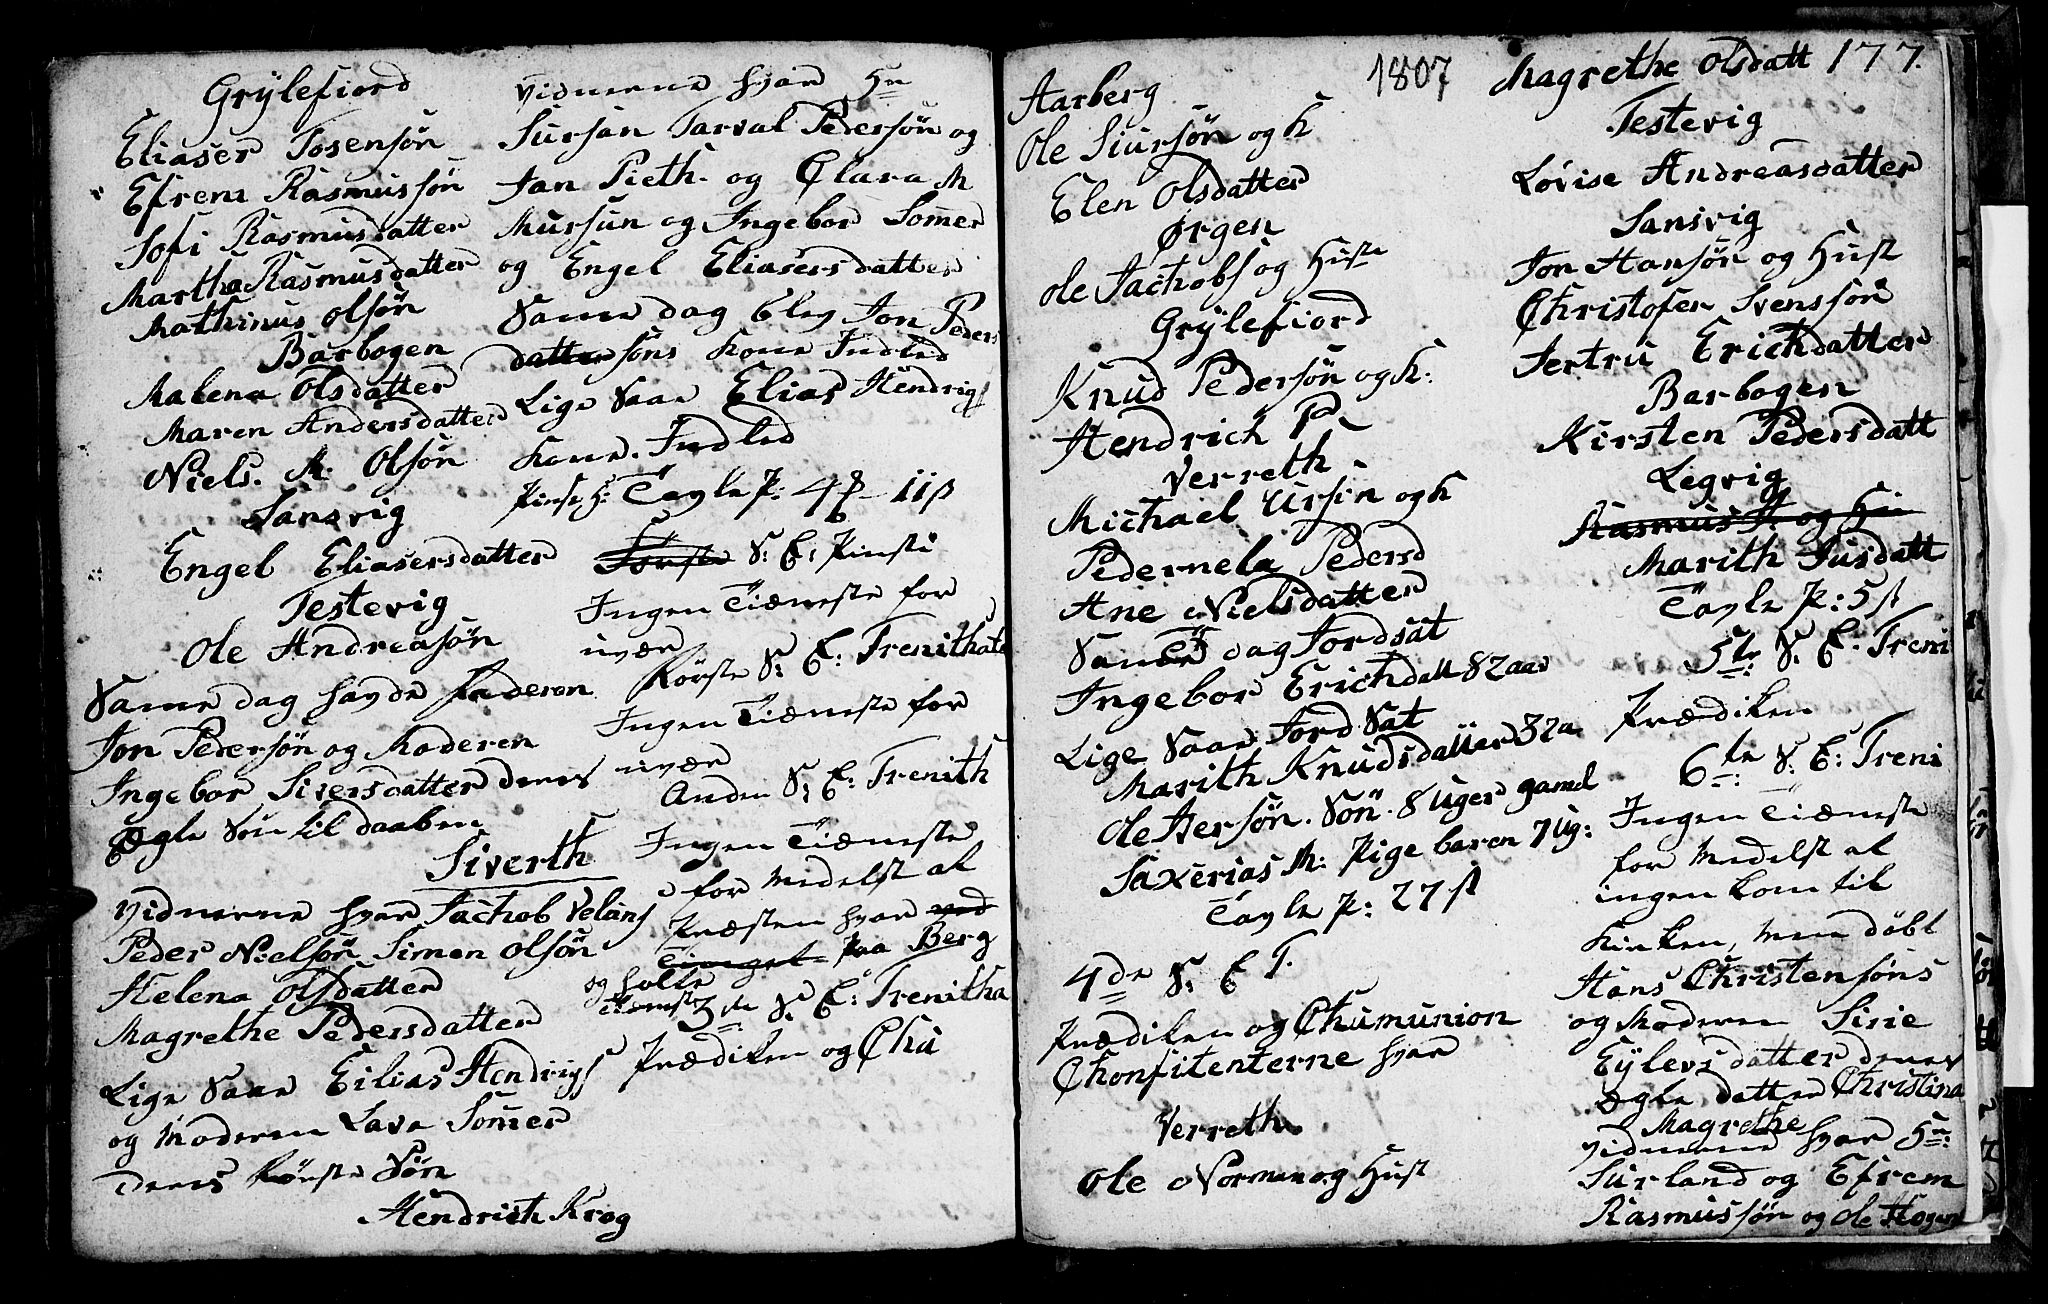 Grÿlefiord
Eliaser Tosensøn
Efrem Rasmussøn
Sofi Rasmusdatter
Martha Rasmusdatter
Mathinus olsøn
Barbogen
Malena Olsdatter
Maren Andersdatter
Niels. M. Olsøn
Sansvig
Engel Eliasersdatter
Testevig
Ole Andreasøn
Same dag havde faderen
Jon Pedersøn og Moderen
Ingebor Siversdatter deres
Ægte Søn til daaben
Siverth
vidnerne hvar Jachob Velans
Peder Nielsøn Simen olsøn
Helena Olsdatter
Magrethe Pedersdatter
Lige Saa Eilias Hendrigs
og Moderen Lava Somer
deres første Søn
Hendrich Krog
vidnerne hvar Hr
Sursan Tarval Pedersøn og
Jan Pieth. og Clara M
Mursun og Ingebor Somer
og Engel Eliasersdatter
Same dag blev Jon Peders
datter søns kone Indled
Lige Saa Elias Hendrigs
kone. Indled
Tavle P: 4ß 11ß
S: E: Pinsti
Ingen Tiæneste for
uvær
Første S: E: Trenithat
Ingen Tiæneste for
uvær
Anden S: E: Trenith
Ingen Tiæneste
for Medelst at
Præsten hvar ved
Tinget paa Berg
og holte
3de S: E: Trenitha
Prædiken og Chu
1807
Aarberg
Ole Siursøn og K
Elen Olsdatter
Ørgen
Ole Jachobs og Huste
Grÿlefiord
Knud Pedersøn og K:
Hendrich P
Verreth
Michael Ursin og K
Pedernela Pedersd
Ane Nielsdatter
Same dag Jordsat
Ingebor Erichdatt 82 aar
Lige Saa Jord Sat
Marith Knudsdatter 32 a
Ole Ajersøn. Søn. 8 uger gamel
Saxerias M: Pige baren 7 ug:
Tavle P: 27 ß
4de S: E T.
Prædiken og Chumunion
Chonfitenterne hvar
Verreth
Ole Norman og Hust
Magrethe Olsdatt 177.
Testevig
Lovise Andreasdatter
Sansvig
Jon Hansøn og Hust
Christofer Svenssøn
Jertru Erichdatter
Barbogen
Kirsten Pedersdatt
Legvig
Rasmus A og Hu
Marith Jusdatt
Tavle P: 5 ß
5te S. E. Treni
Prædiken
6te S: E: Treni
Ingen Tiæneste
for Medelst at
ingen kom til
kirken, Men døbt
Hans Christensøns
og Moderen Sirie
Eÿlers datter deres
Ægte datter Christina
Magrethe
vidnerne hvar Hr:
Surland og Efrem
Rasmussøn og Ole Hogen